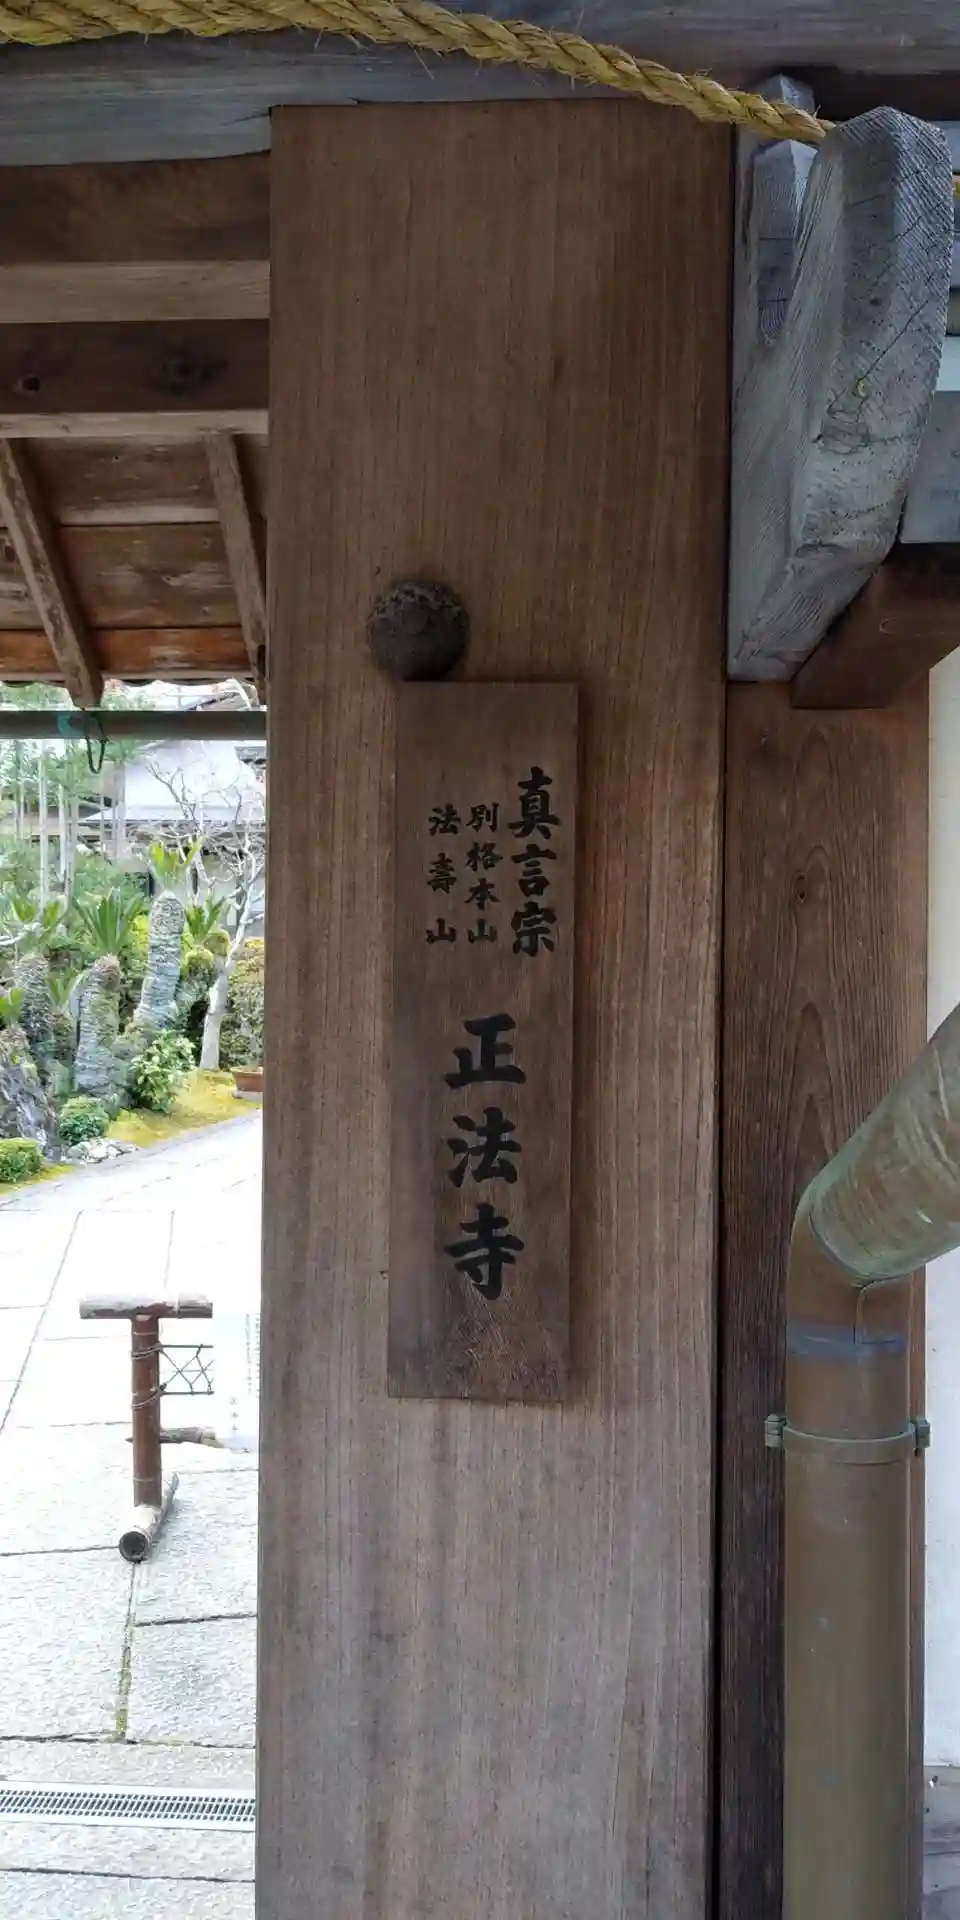 真言宗
別格本山
法壽山
正法寺